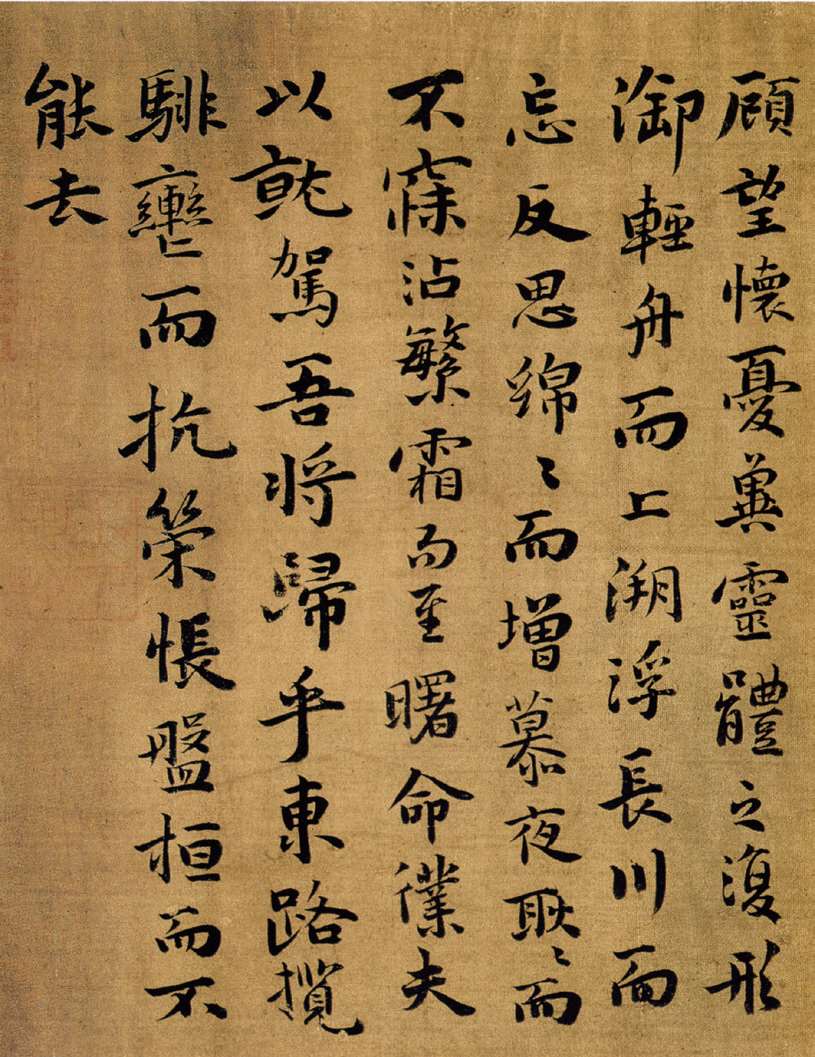 顧望懷憂冀靈體之復形
御輕舟而上溯浮長川而
忘反思綿々而增慕夜耿々而
不寐沾繁霜而至曙命僕夫
以就駕吾将歸乎東路攬
騑轡而抗策悵盤桓而不
能去